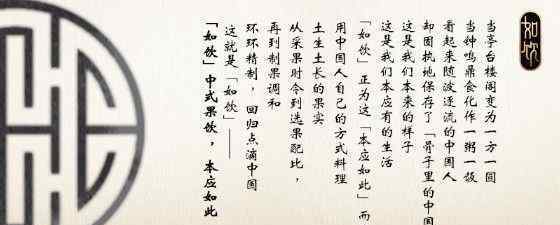 如饮
当亭台楼阁变为一方一圆
当钟鸣鼎食化作一粥一饭
看起来随波逐流的中国人
却固执地保存了「骨子里的中国
这是我们本来的样子
这是我们本应有的生活
「如饮」正为这「本应如此」而
用中国人自己的方式料理
土生土长的果实
从采果时令到选果配比，
再到制果调和
环环精制，回归点滴中国
这就是「如饮」——
「如饮」中式果饮，本应如此